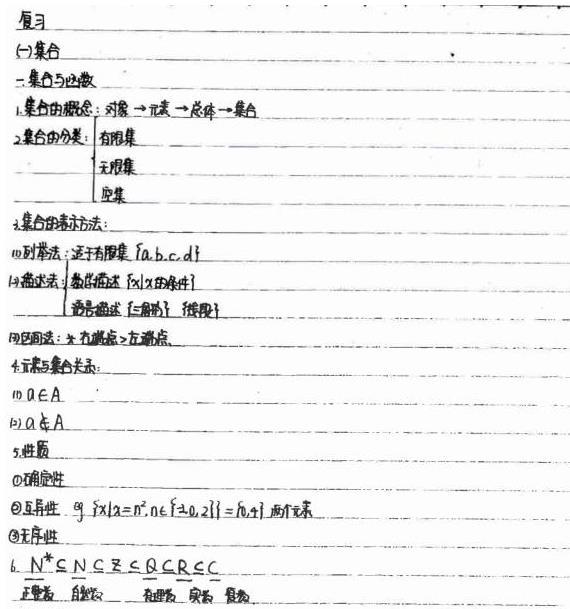 复习
(一)集合
一.集合与函数
1.集合的概念:对象→元素→总体→集合
2.集合的分类:有限集
无限集
空集
3.集合的表示方法:
(1)列举法:适于有限集{a.b.c.d}
(2)描述法:数学描述{x|x的条件}
语言描述{三角形} {线段}
(3)区间法:* 右端点>左端点
4.元素与集合关系:
(1) a∈A
(2) a∉A
5.性质
①确定性
②互异性 eg {x|x=n²,n∈{-2,0,2}}={0,4} 两个元素
③无序性
6. N*⊆N⊆Z⊆Q⊆R⊆C
正整数 自然数 有理数 实数 复数